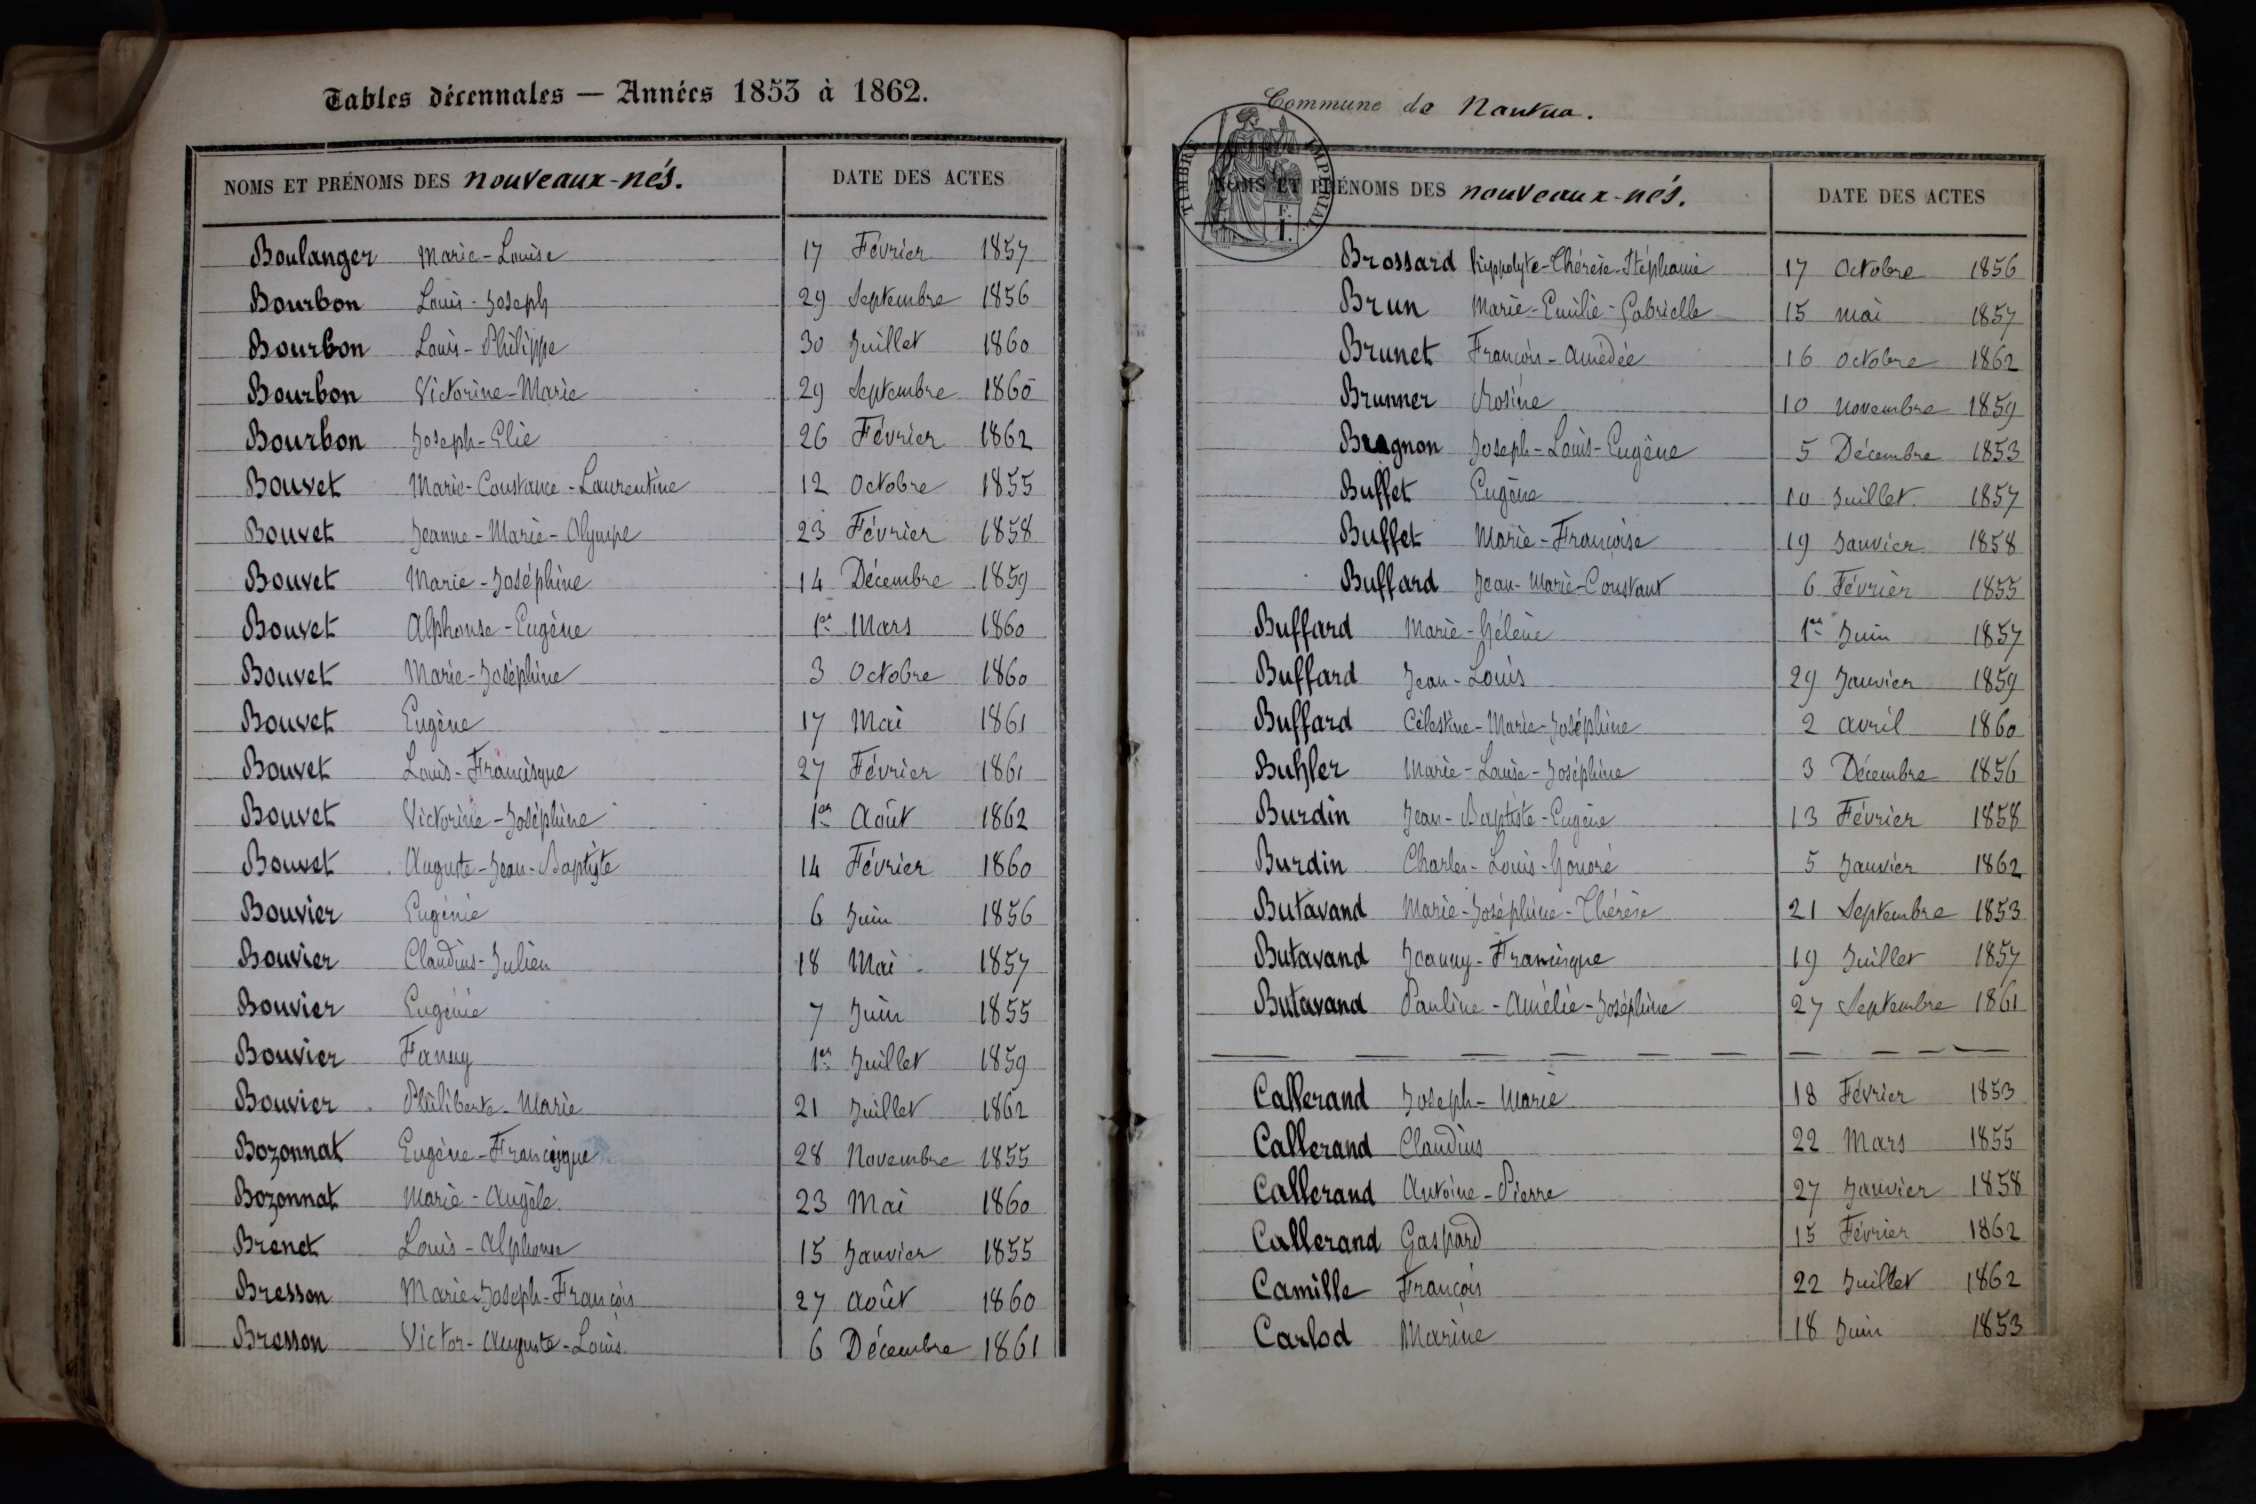 Tables décennales — Années 1853 à 1862.
NOMS ET PRÉNOMS DES nouveaux-nés. DATE DES ACTES
Boulanger Marie-Louise 17 Février 1857
Bourbon Louis-Joseph 29 Septembre 1856
Bourbon Louis-Philippe 30 Juillet 1860
Bourbon Victorine-Marie 29 Septembre 1860
Bourbon Joseph-Elie 26 Février 1862
Bouvet Marie-Constance-Laurentine 12 Octobre 1855
Bouvet Jeanne-Marie-Olympe 23 Février 1858
Bouvet Marie-Joséphine 14 Décembre 1859
Bouvet Alphonse-Eugène 1er Mars 1860
Bouvet Marie-Joséphine 3 Octobre 1860
Bouvet Eugène 17 Mai 1861
Bouvet Louis-Francisque 27 Février 1861
Bouvet Victorine-Joséphine 1er Août 1862
Bouvet Auguste-Jean-Baptiste 14 Février 1860
Bouvier Eugénie 6 Juin 1856
Bouvier Claudius-Julien 18 Mai 1857
Bouvier Eugénie 7 Juin 1855
Bouvier Fanny 1er Juillet 1859
Bouvier Philiberte-Marie 21 Juillet 1862
Bozonnat Eugène-Francisque 28 Novembre 1855
Bozonnat Marie-Angèle 23 Mai 1860
Brenet Louis-Alphonse 15 Janvier 1855
Bresson Marie-Joseph-François 27 Août 1860
Bresson Victor-Auguste-Louis 6 Décembre 1861
Commune de Nantua.
TIMBRE IMPÉRIAL
NOMS ET PRÉNOMS DES nouveaux-nés. DATE DES ACTES
Brossard Hyppolyte-Thérèse-Stéphanie 17 Octobre 1856
Brun Marie-Emilie-Gabrielle 15 mai 1857
Brunet François-Amédée 16 Octobre 1862
Brunner Rosine 10 novembre 1859
Joseph-Louis-Eugène 5 Décembre 1853
Buffet Eugène 10 Juillet 1857
Buffet Marie-Françoise 19 Janvier 1858
Buffard Jean-Marie-Constant 6 Février 1855
Buffard Marie-Hélène 1er Juin 1857
Buffard Jean-Louis 29 Janvier 1859
Buffard Célestine-Marie-Joséphine 2 avril 1860
Buhler Marie-Louise-Joséphine 3 Décembre 1856
Burdin Jean-Baptiste-Eugène 13 Février 1858
Burdin Charles-Louis-Honoré 5 Janvier 1862
Butavand Marie-Joséphine-Thérèse 21 Septembre 1853
Butavand Joanny-Francisque 19 Juillet 1857
Butavand Pauline-Amélie-Joséphine 27 Septembre 1861
Callerand Joseph-Marie 18 Février 1853
Callerand Claudius 22 Mars 1855
Callerand Antoine-Pierre 27 Janvier 1858
Callerand Gaspard 15 Février 1862
Camille François 22 Juillet 1862
Carlod Marine 18 Juin 1853